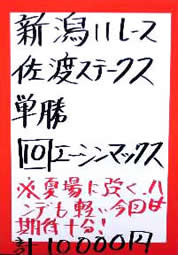 新潟11レース
佐渡ステークス
単勝
10エーシンマックス
※夏場に強く、ハ
ンデも軽い今回は
期待する!
計10000円